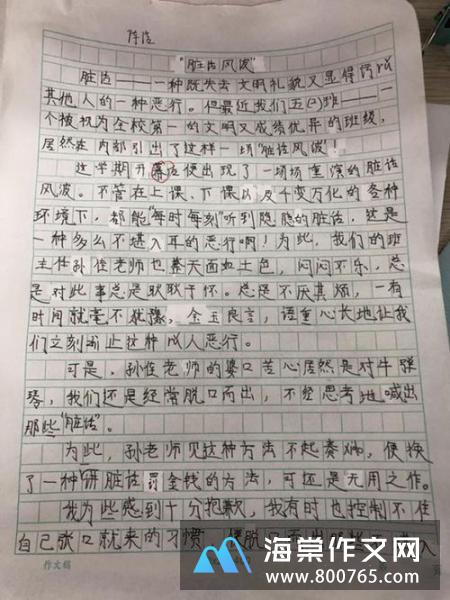 陈洁
"脏话风波"
脏话——一种既失去文明礼貌又思得罚以
其他人的一种恶行。但最近我们五(一)班——一
个被视为全校第一的文明又成绩优异的班级,
居然在内部引出了这样一场"脏话风波!
这学期开幕后便出现了一场场重演的脏话
风波。不管在上课、下课以及千变万化的各种
环境下,都能"每时每刻"听到隐隐的脏话,这是
一种多么不进入耳的恶行啊!为些,我们的班
主任孙佳老师也整天面如土色,闷闷不乐,总
是对此事总是耿耿于怀。总是不厌其烦,一有
时间就毫不犹豫,金玉良言,语重心长地让我
们立刻断止这种成人恶行。
可是,孙佳老师的婆口苦心居然是对牛弹
琴,我们还是经常脱口而出,不经思考地喊出
那些"脏话"。
为些,孙老师见这种方法不起奏效,便换
了一种讲脏话罚金钱的方法,可还是无用之作。
我为些感到十分抱歉,我有时也控制不住
自己张口就来的习惯,
作文稿
海棠作文网
www.800765.com